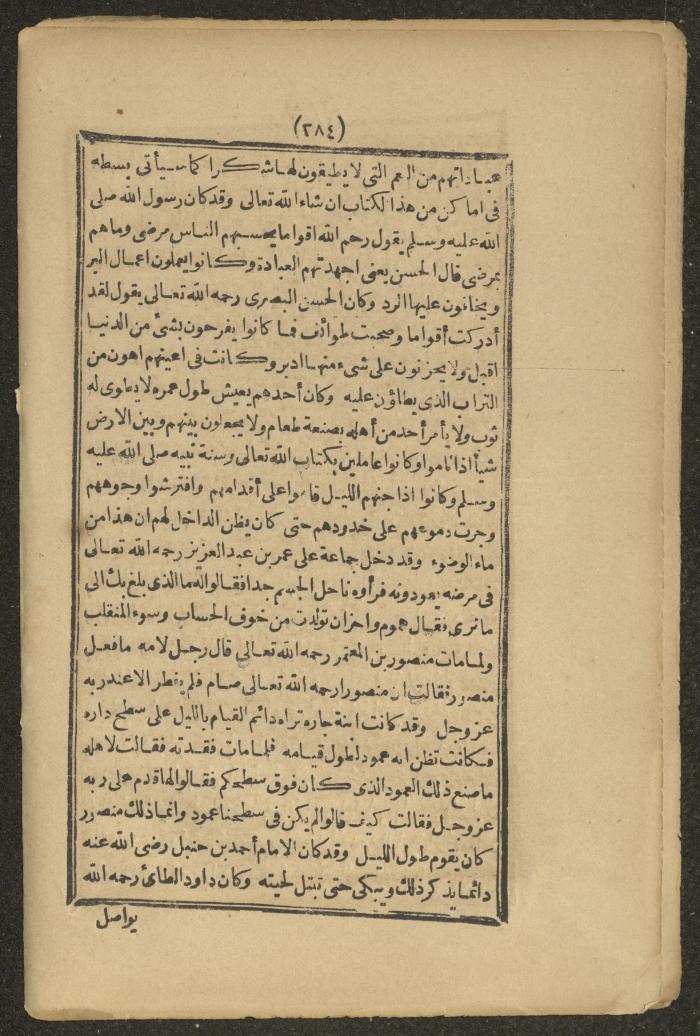 (٢٨٤)
عباداتهم من النعم التى لا يطيقون لها شكرا كما سيأتى بسطه
فى اماكن من هذا الكتاب ان شاء الله تعالى وقد كان رسول الله صلى
الله عليه وسلم يقول رحم الله اقواما يحسبهم الناس مرضى وما هم
بمرضى قال الحسن يعنى اجهدتهم العبادة وكانوا يعملون اعمال البر
ويخافون عليها الرد وكان الحسن البصرى رحمه الله تعالى يقول لقد
أدركت أقواما وصحبت طوائف فما كانوا يفرحون بشئ من الدنيا
اقبل ولا يحزنون على شىء منها ادبر وكانت فى اعينهم اهون من
التراب الذى يطاؤن عليه وكان أحدهم يعيش طول عمره لا يطوى له
ثوب ولا يأمر أحد من أهله بصنعة طعام ولا يجعلون بينهم وبين الارض
شيأ اذا ناموا وكانوا عاملين بكتاب الله تعالى وسنة نبيه صلى الله عليه
وسلم وكانوا اذا جنهم الليل قاموا على أقدامهم وافترشوا وجوههم
وجرت دموعهم على خدودهم حتى كان يظن الداخل لهم ان هذا من
ماء الوضوء وقد دخل جماعة على عمر بن عبد العزيز رحمه الله تعالى
فى مرضه يعودونه فرأوه ناحل الجسم جدا فقالوا له ما الذى بلغ بك الى
ما نرى فقال هموم واحزان تولدت من خوف الحساب وسوء المنقلب
ولما مات منصور بن المعتمر رحمه الله تعالى قال رجل لامه ما فعل
منصور فقالت ان منصورا رحمه الله تعالى صام فلم يفطر الا عند ربه
عز وجل وقد كانت ابنة جاره تراه دائم القيام بالليل على سطح داره
فكانت تظن انه عمود لطول قيامه فلما مات فقدته فقالت لاهله
ما صنع ذلك العمود الذى كان فوق سطحكم فقالوا لها قدم على ربه
عز وجل فقالت كيف قالوا لم يكن فى سطحنا عمود وانما ذلك منصور
كان يقوم طول الليل وقد كان الامام أحمد بن حنبل رضى الله عنه
دائما يذكر ذلك ويبكى حتى تبتل لحيته وكان داود الطائى رحمه الله
يواصل